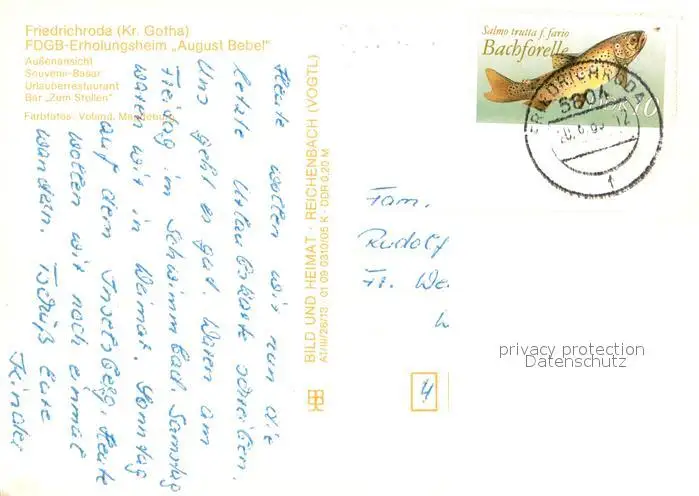 Friedrichroda (Kr. Gotha)
FDGB-Erholungsheim „August Bebel"
Außenansicht
Souvenir-Basar
Urlauberrestaurant
Bar „Zum Stollen"
Farbfotos: Volland, Magdeburg
Heute wollen wir nun die
letzte Urlaubskarte schreiben.
Uns geht es gut. Waren am
Freitag im Schwimmbad. Samstag
waren wir in Weimar. Sonntag
auf dem Inselsberg. Heute
wollen wir noch einmal
wandern. Tschüß Eure
Kinder
BILD UND HEIMAT · REICHENBACH (VOGTL)
A1/III/26/13 01 09 0310/05 K · DDR 0,20 M
Salmo trutta f. fario
Bachforelle
DDR 10
FRIEDRICHRODA
5804
12
1
Fam.
Rudolf
Fr. We
4
privacy protection
Datenschutz